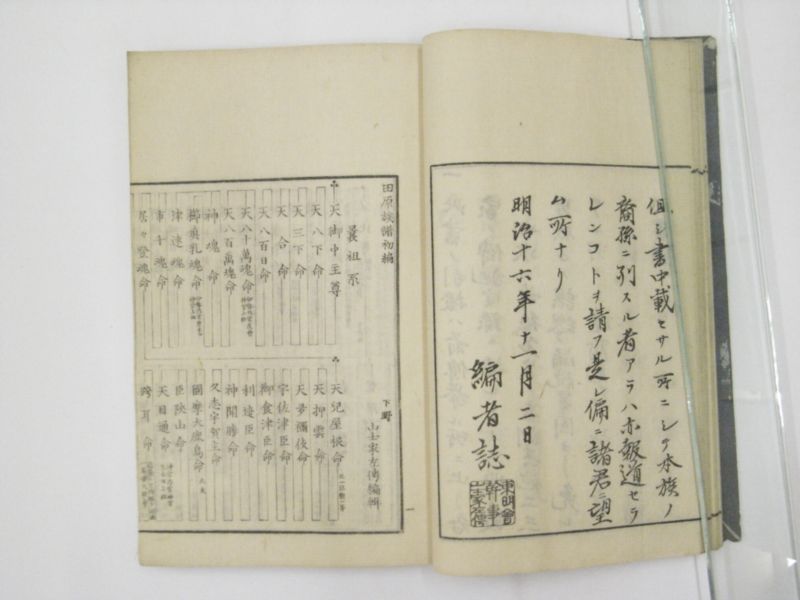 但シ書中載セサル所ニシテ本族ノ
裔孫ニ列スル者アラハ亦報道セラ
レンコトヲ請フ是レ偏ニ諸君ニ望
ム所ナリ
明治十六年十一月二日
編者誌
東明會
幹事
山士家左傳
田原族譜初編
下野
山士家左傳編輯
曩祖系
天御中主尊
天八下命
天三下命
天合命
天八百日命
天八十萬魂命
天八百萬魂命
神魂命
櫛眞乳魂命
津速魂命
市千魂命
居々登魂命
天兒屋根命
天押雲命
天多禰伎命
宇佐津臣命
御食津臣命
利速臣命
神聞勝命
久志宇賀主命
國摩大鹿島命
臣狹山命
天目通命
跨耳命